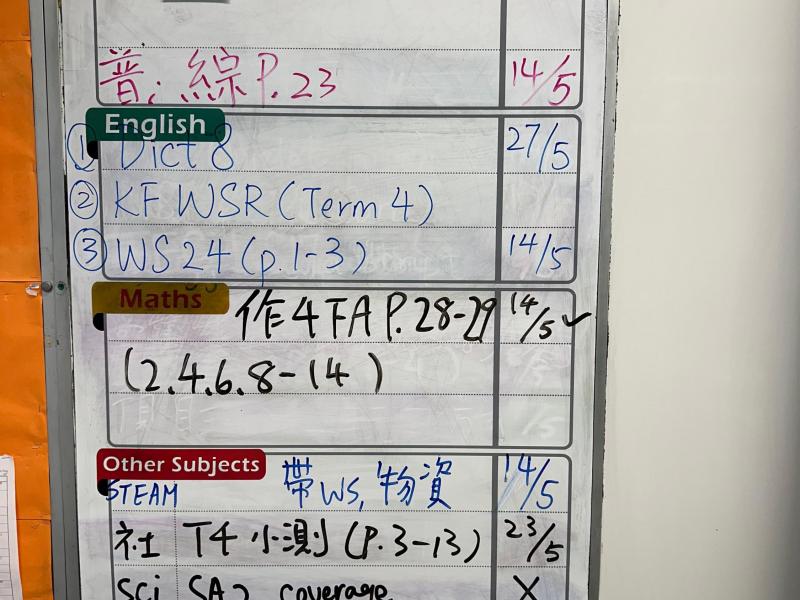 普: 綜 P.23 14/5
English
① Dict 8 27/5
② KF WSR (Term 4)
③ WS 24 (p.1-3) 14/5
Maths
作4TA P.28-29 14/5 ✓
(2.4.6.8-14)
Other Subjects
STEAM 帶WS, 物資 14/5
社 T4 小測 (P.3-13) 23/5
Sci SA2 coverage X